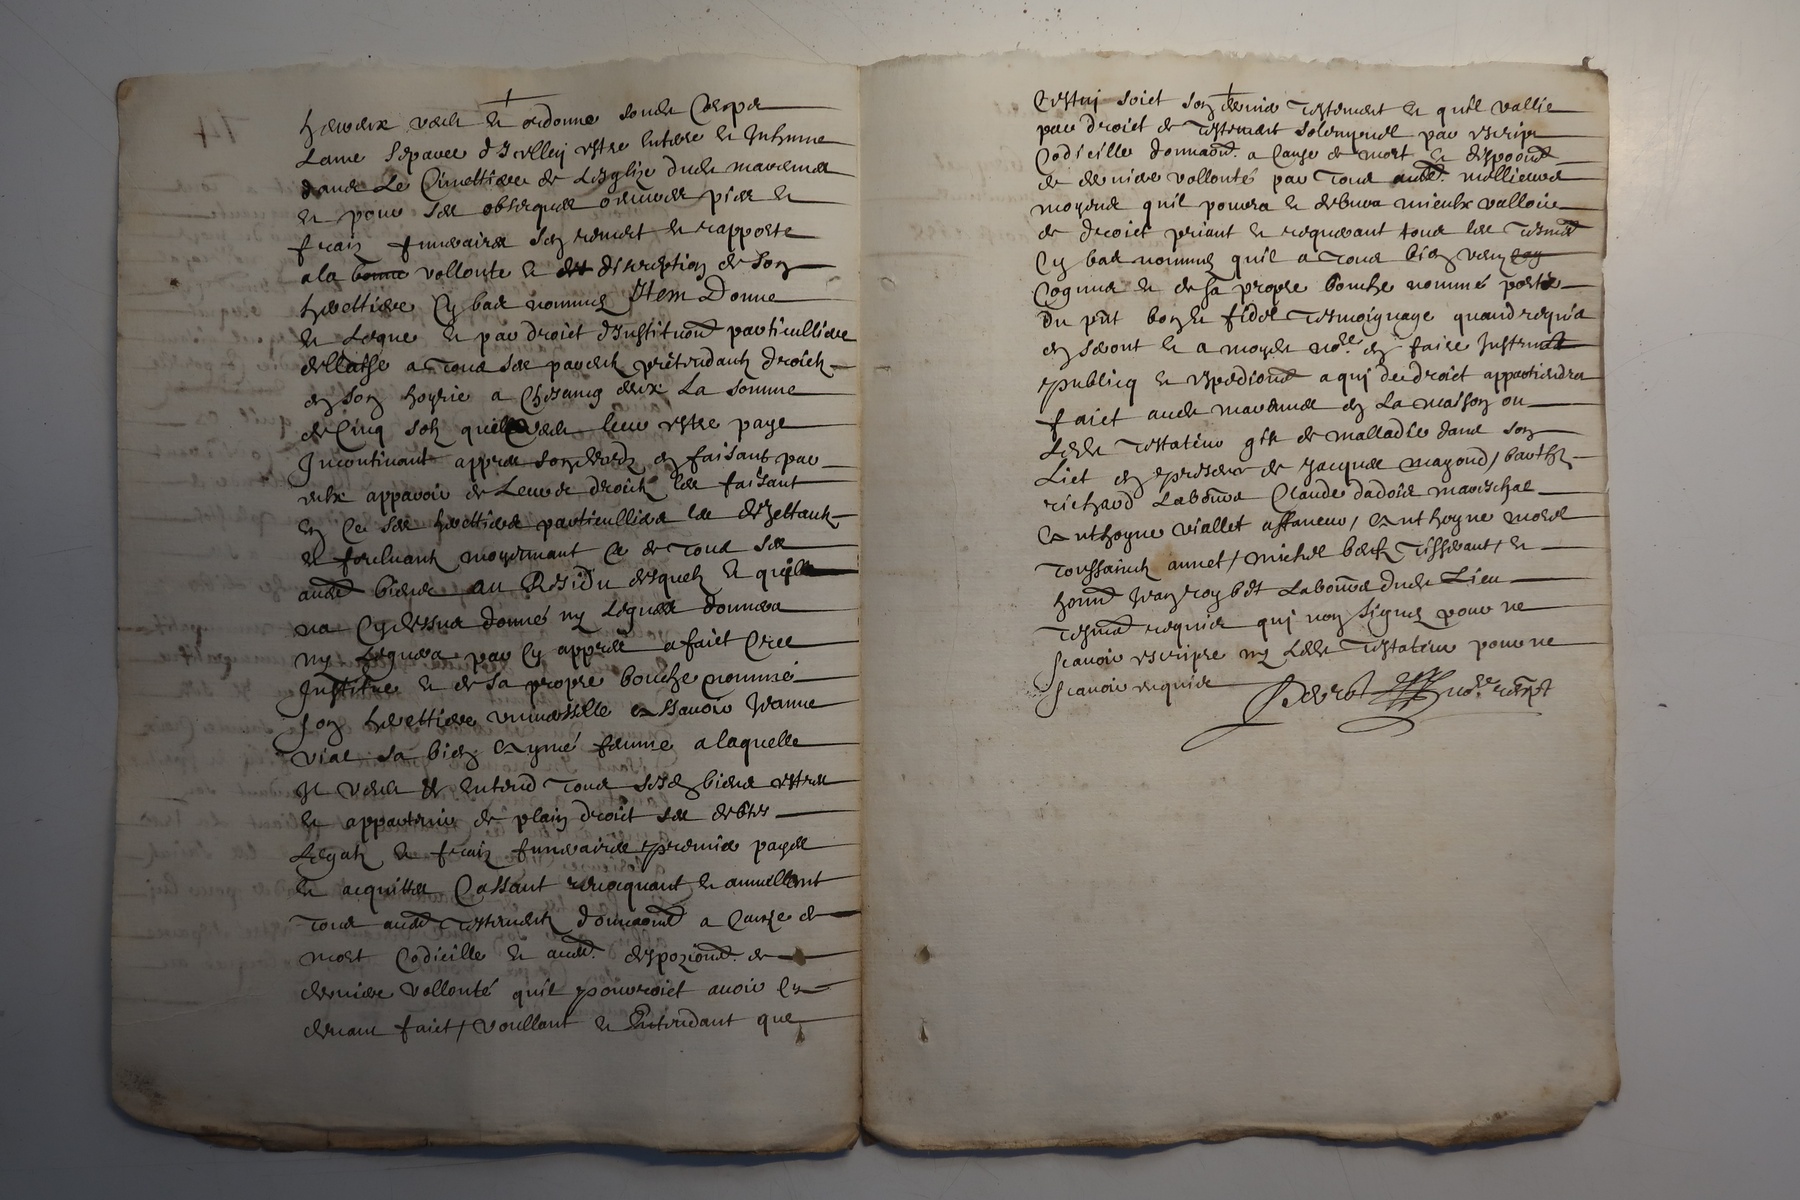 heureux veult et ordonne sondt Corps
Lame separee dIcelluy estre enterre et Inhume
dans Le Cimettiere de Leglize dudt
et pour ses obseques oeuvres pies et
fraiz funeraires sen remect et rapporte
a la bonne vollonte et discretion de son
herettiere Cy bas nommee Item Donne
et Legue et par droict dInstitution particulliere
dellaisse a tous ses parents pretendantz droictz
en son hoyrie a Chascung deux La somme
de Cinq solz quil veult leur estre paye
Incontinant appres son deces en faisant par
eulx apparoir de Leurs droictz les faisant
en Ce ses herettiers particulliers les
et forcluant moyennant Ce de tous ses
aultres biens au Residu desquelz et quil
na Cy dessus donné ny Legue donnera
ny Leguera par Cy appres a faict Cree
Institue et de sa propre bouche nommé
son herettiere universelle assavoir Jeanne
vial sa bien aymé femme a laquelle
Il veult et entend tous sesd biens estre
et appartenir de plain droict ses debtes
Legatz et fraiz funeraires premier payes
et acquittes Cassant revocquant et annullant
tous aultres testamentz donnaons a Cause de
mort Codicille et aultres dispozions de
derniere vollonté quil pourroict avoir Cy
devant faict / voullant et Entendant que
Cestuy soict son dernier testement et quil vallie
par droict de testement solempnel par escript
Codicille donnaon a Cause de mort et dispoon
de derniere vollonté par tous aultres mellieurs
moyens quil pourra et debvra mieulx valloir
de droict priant et requerant tous les tesmoingz
Cy bas nommes quil a tous bien veu
Cognus et de sa propre bouche nommé porter
du pnt bon et fidel tesmoignage quand requis
en seront et a moyd nore en faire Instrument
publicq et expedion a qui de droict appartiendra
faict audt en La maison ou
Ledt testateur gist de malladie dans son
Lict en presence de Jacques mazond / barthz
richard Laboureur Claude dadois mareschal
Anthoyne viallet affaneur / Anthoyne morel
toussainct annet / michel tisserant / et
Laboureur dudt Lieu
tesmoingz requis qui non signes pour ne
scavoir escripre ny Ledt testateur pour ne
scavoir requis nore